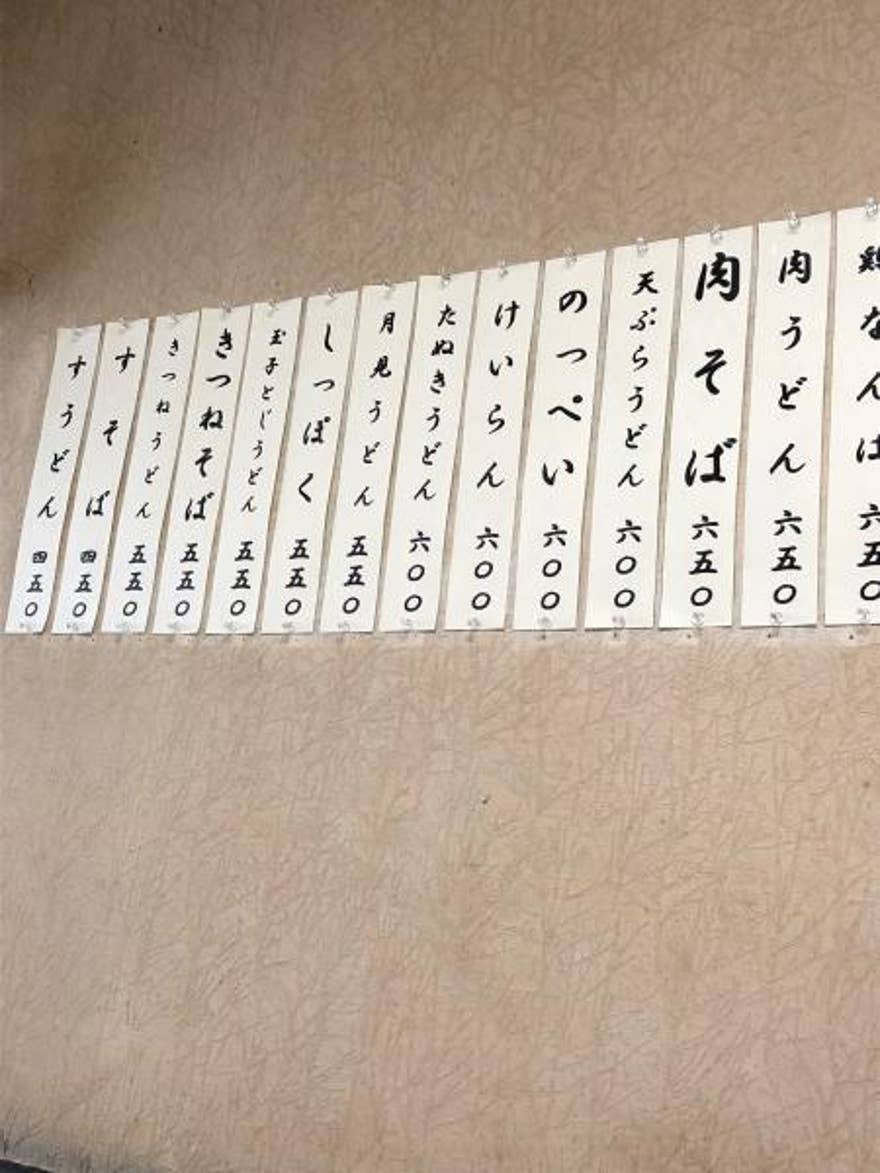 鶏なんば 六五〇
肉うどん 六五〇
肉そば 六五〇
天ぷらうどん 六〇〇
のっぺい 六〇〇
けいらん 六〇〇
たぬきうどん 六〇〇
月見うどん 五五〇
しっぽく 五五〇
玉子とじうどん 五五〇
きつねそば 五五〇
きつねうどん 五五〇
すそば 四五〇
すうどん 四五〇